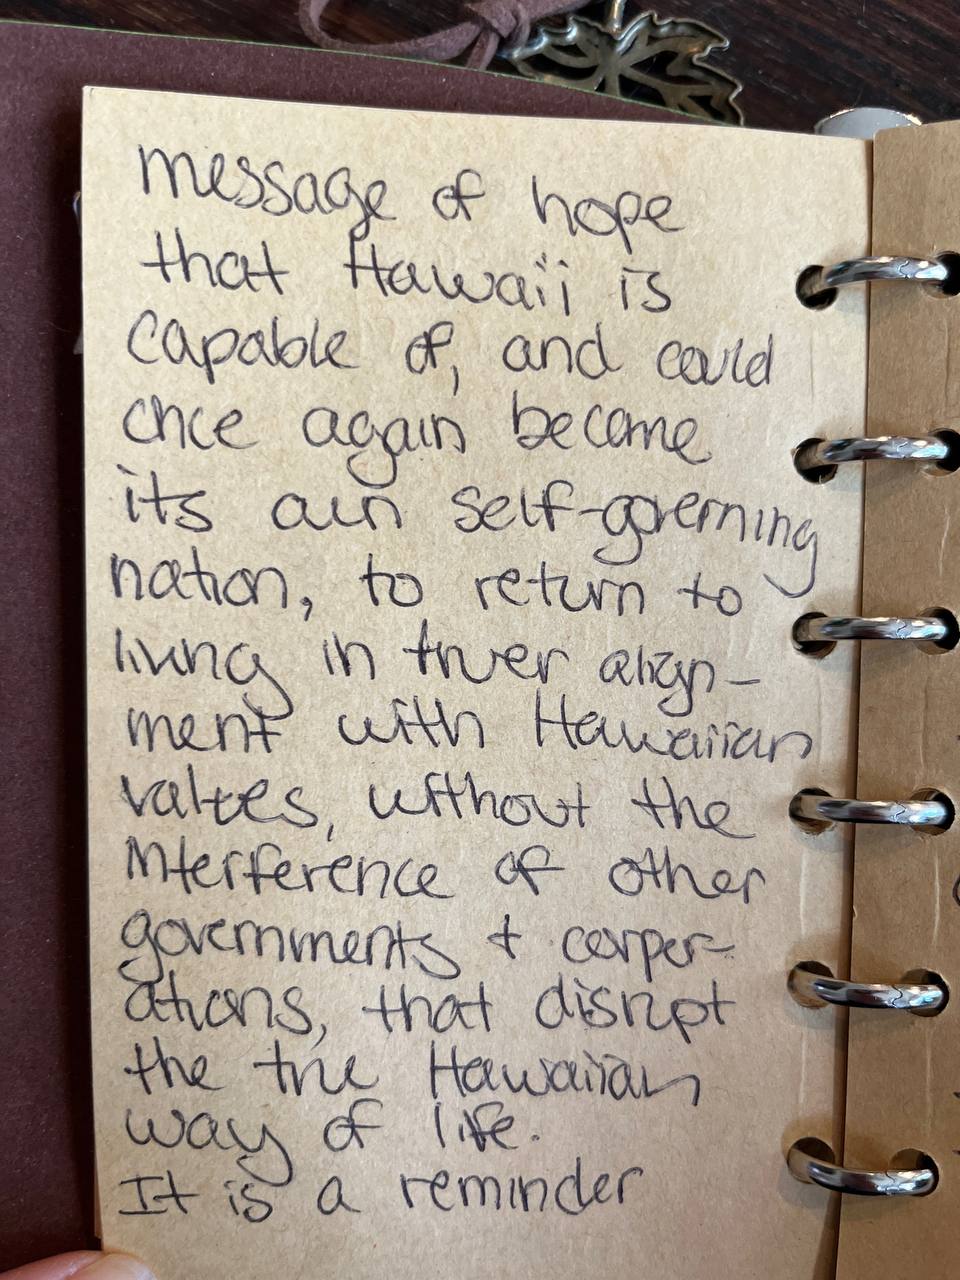 message of hope
that Hawai'i is
capable of, and could
once again become
its own self-governing
nation, to return to
living in truer align-
ment with Hawaiian
values, without the
interference of other
governments + corpor-
ations, that disrupt
the true Hawaiian
way of life.
It is a reminder